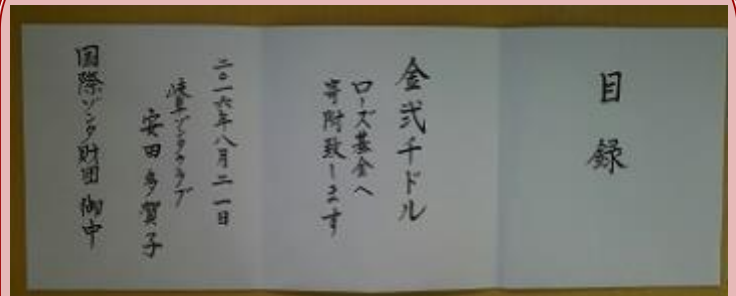 目録
金弐千ドル
ローズ基金へ
寄附致します
二〇一六年八月二一日
岐阜ゾンタクラブ
安田多賀子
国際ゾンタ財団 御中